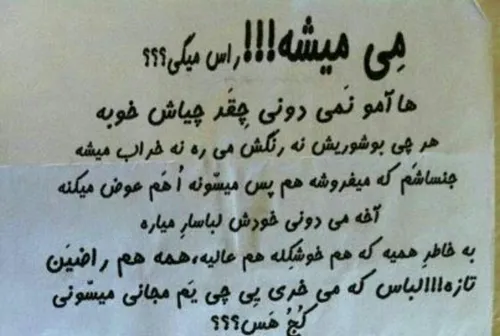 مِی میشه!!! راس میگی؟؟؟
ها آمو نَمی دونی چِقَر چیاش خوبه
هر چی بوشوریش نه رنگش می ره نه خراب میشه
جنساشَم که میفروشه هم پس میسّونه اُ هَم عوض میکنه
آخه می دونی خودش لباسارِ میاره
به خاطرِ همیه که هم خوشگِله هم عالیه، همه هم راضیَن
تازه!!!لباس که می خری پِی چی یَم مجانی میسّونی
کُجُ هَس؟؟؟